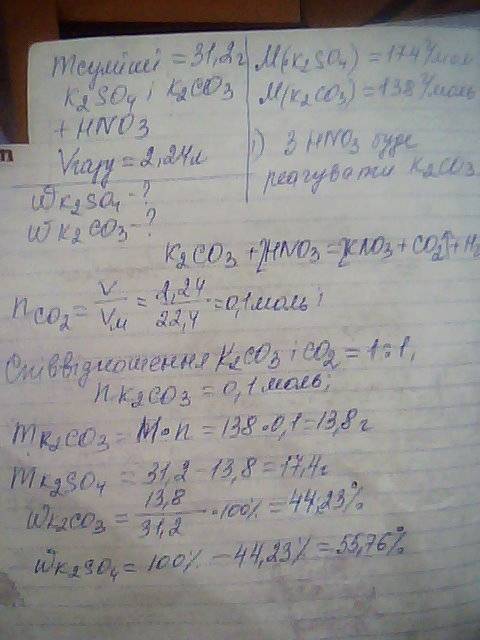 mсуміші = 31,2г
K2SO4 і K2CO3
+ HNO3
Vгазу = 2,24л
WK2SO4 - ?
WK2CO3 - ?
M(K2SO4) = 174 г/моль
M(K2CO3) = 138 г/моль
1) З HNO3 буде
реагувати K2CO3
K2CO3 + 2HNO3 = 2KNO3 + CO2↑ + H2
nCO2 = V/Vм = 2,24/22,4 = 0,1 моль;
Співвідношення K2CO3 і CO2 = 1:1,
n K2CO3 = 0,1 моль;
mK2CO3 = M·n = 138·0,1 = 13,8 г
mK2SO4 = 31,2 - 13,8 = 17,4г
WK2CO3 = 13,8/31,2 · 100% = 44,23%
WK2SO4 = 100% - 44,23% = 55,76%